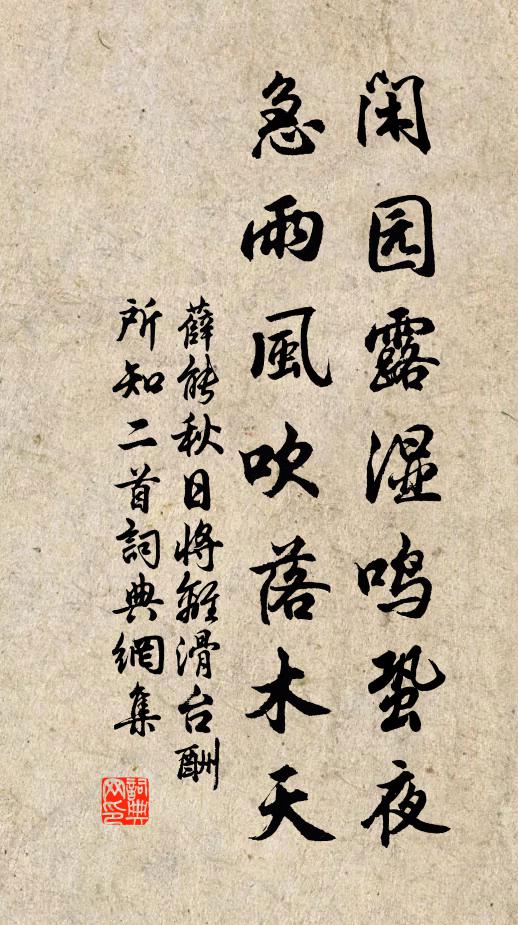 闲园露湿鸣蛩夜
急雨風吹落木天
薛能秋日将離滑台酬
所知二首詞典網集
詞典
网印